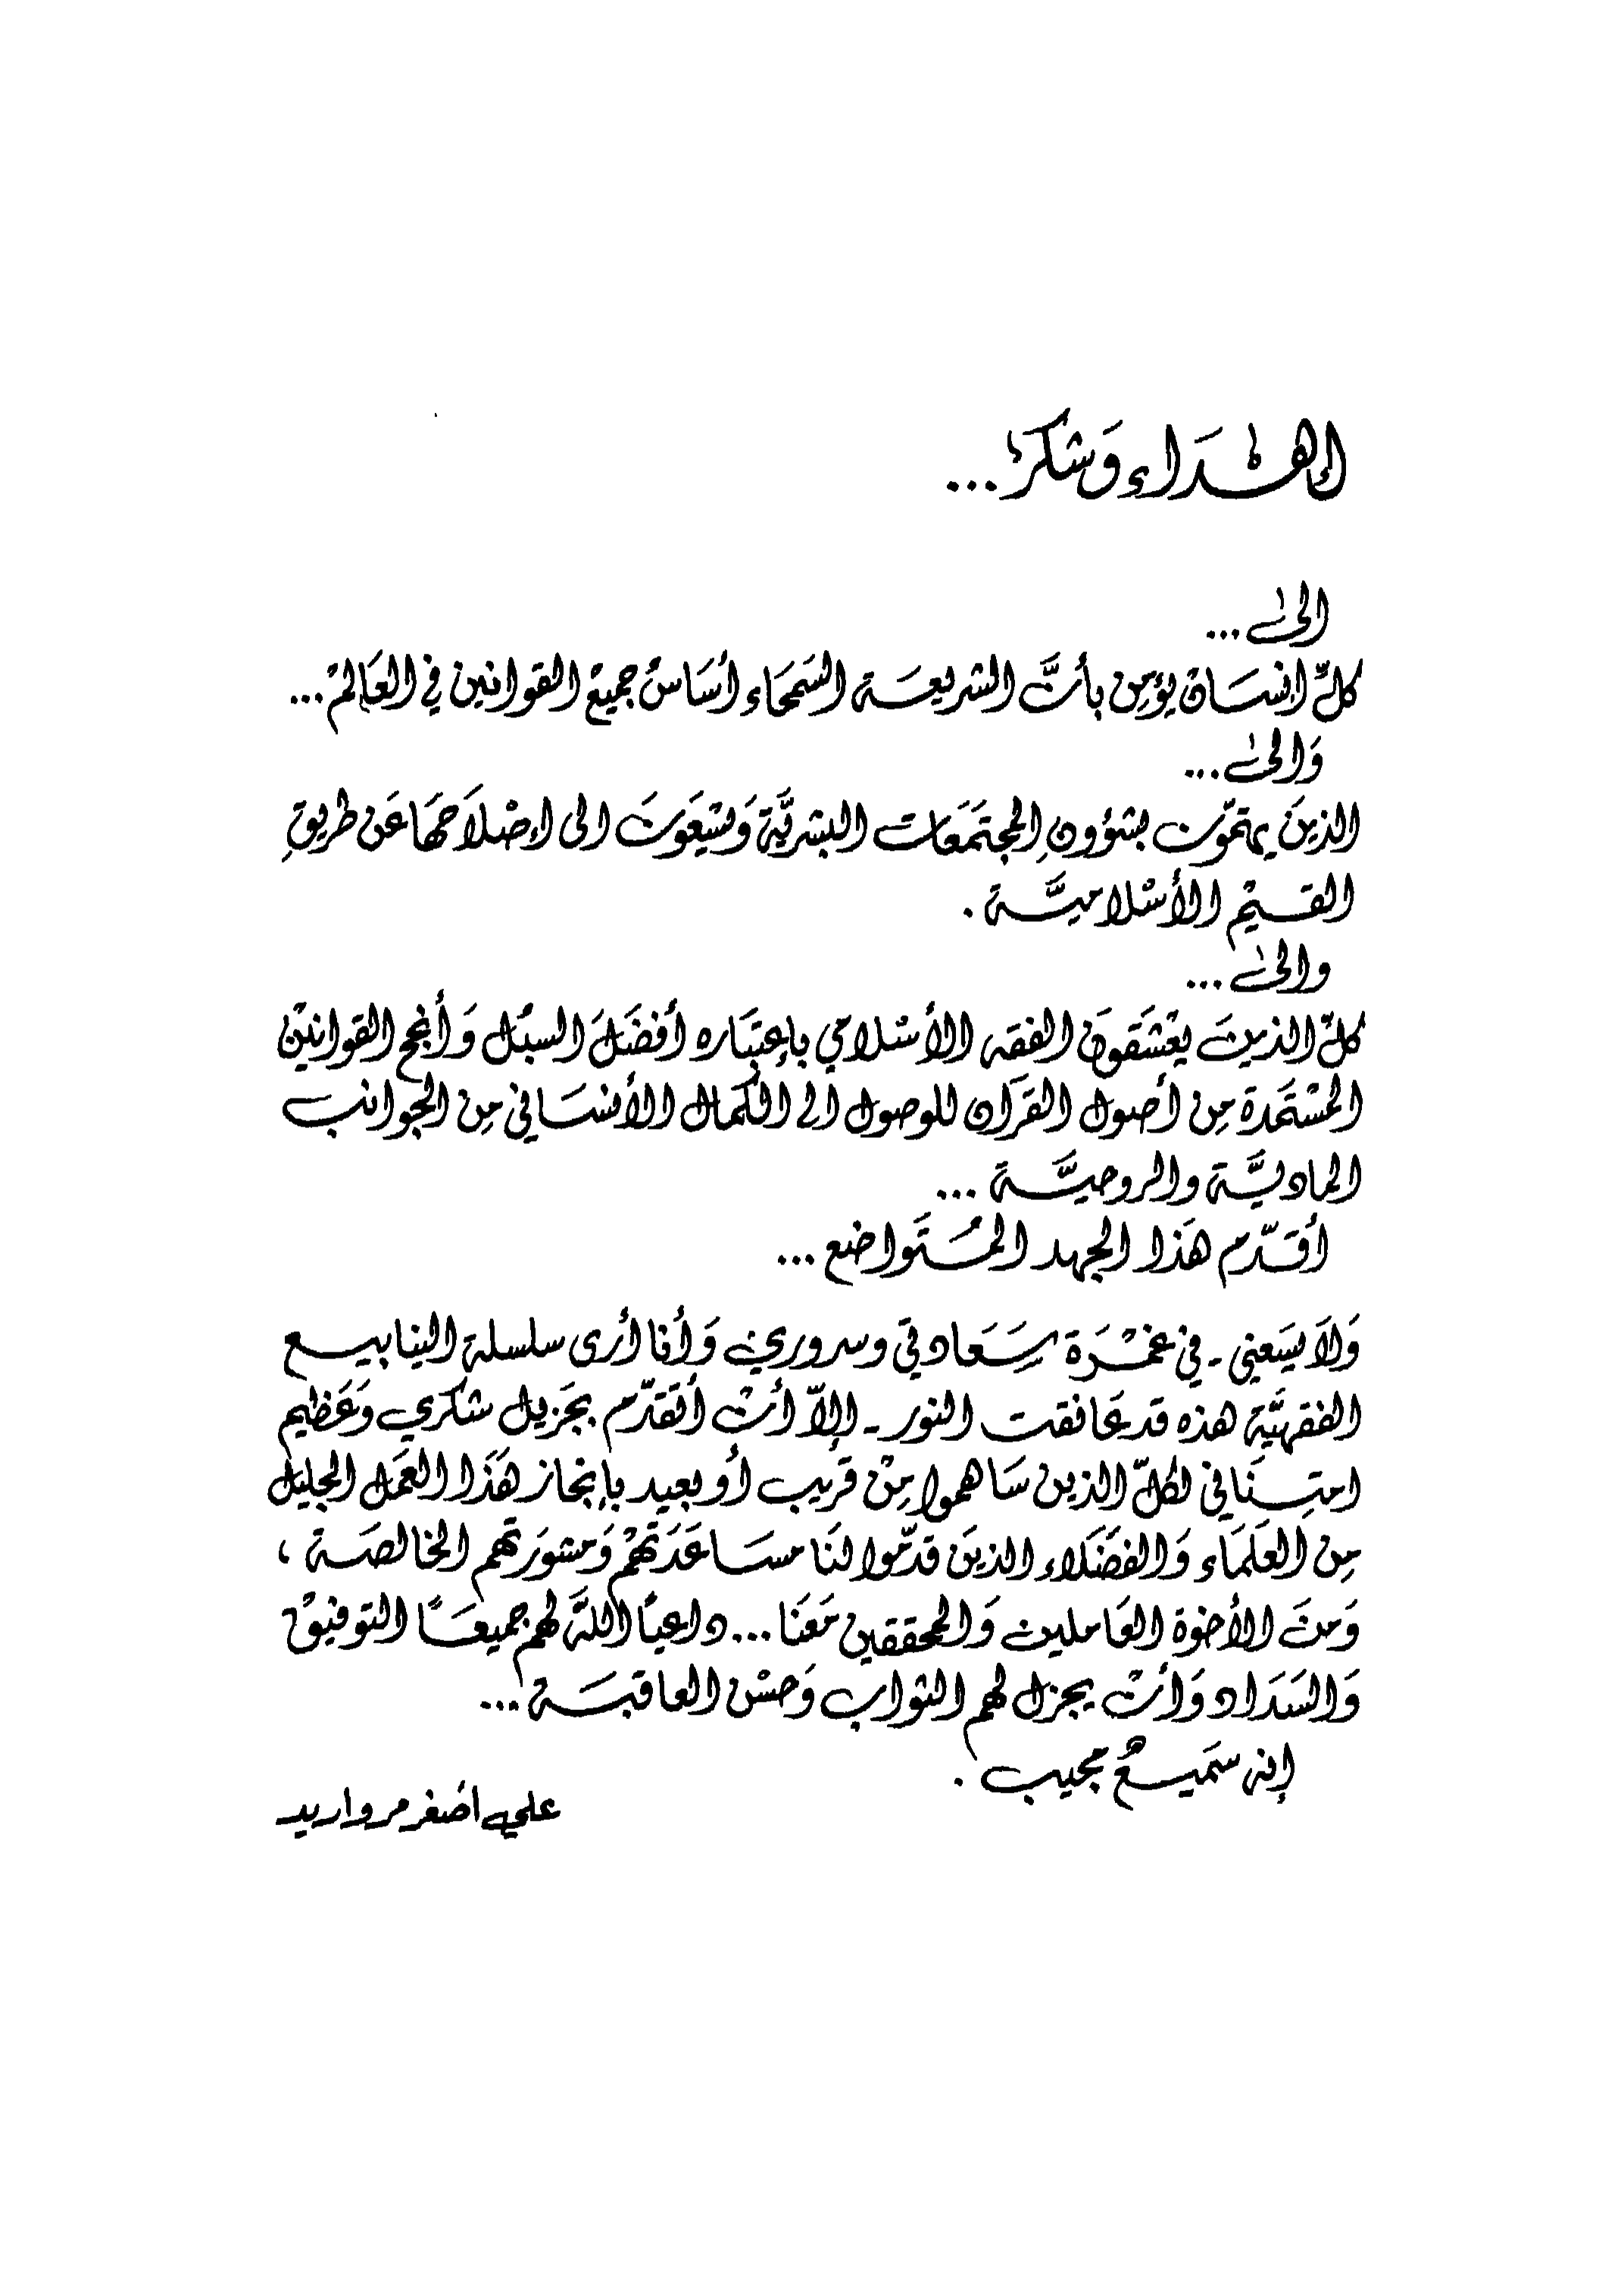 إهْدَاء وَشكرْ...
الىٰ...
كلّ انسَان يؤمِن بأنَّ الشريعَة السَمحَاء أسَاسُ جميعْ القوانين في العَالمْ...
وَالىٰ...
الذينَ يهتمّون بشؤونِ المجتَمَعَات البشريَّة وَيسْعَونَ الى اصْلَاحهَا عَن طريقِ
القيمْ الأسْلاميَّة.
والىٰ...
كلّ الذينَ يعْشَقونَ الفقه الأسْلامي بإعتبَاره أفضَلَ السبُل وَأنجح القوانينْ
المسْتَمدة مِن أصول القرآن للوصول الى الكمال الأنسَاني مِن الجوانب
الماديَّة والروحيَّة...
أقَدّم هَذا الجهد المُتَواضع...
وَلَا يسَعني - في غمْرَة سَعَادتي وسروري وَأنا أرى سلسلة الينابيع
الفقهيَّة هذه قد عَانقت النور - إلاّ أنْ أتَقدّم بجَزيل شكري وَعَظيم
امتِنَاني لكلّ الذين سَاهموا مِنْ قريب أو بعيد بإنجاز هَذَا العَمَل الجليل
مِن العلَمَاء وَالفضَلاء الذينَ قدّموا لنَا مسَاعَدَتهُمْ وَمشورَتهم الخالصَة،
وَمنَ الأخوة العَاملين وَالمحققين مَعَنَا... داعيًا اللَّه لهم جميعًا التوفيقْ
وَالسَدَاد وَأنْ يجزل لهم الثواب وَحسْن العاقبَة...
إنه سَميعٌ مجيب.
علي اصْغر مرواريد